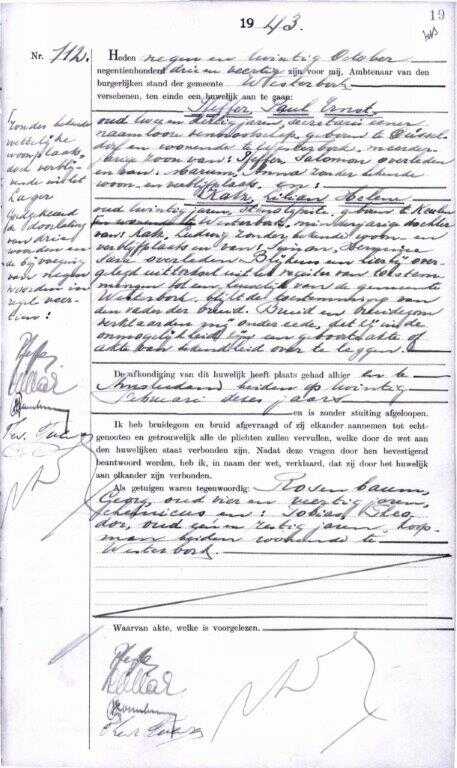 19
1943.
Nr. 112.
Heden negen en twintig October
negentienhonderd drie en veertig zijn voor mij, Ambtenaar van den
burgerlijken stand der gemeente Westerbork
verschenen, ten einde een huwelijk aan te gaan:
Pfeffer, Paul Ernst,
oud twee en dertig jaren, secretaris eener
naamlooze vennootschap, geboren te Düssel-
dorf en wonende te Westerbork, meerder-
jarige zoon van: Pfeffer, Salomon overleden
en van: Marum, Anna zonder bekende
woon en verblijfplaats, en:
Katz, Lilian Helene
oud twintig jaren, stenotypiste, geboren te Keulen
en wonende te Westerbork, minderjarige dochter
van: Katz, zonder bekende woon en
verblijfplaats en van:
overleden. Blijkens een hierbij over-
gelegd uittreksel uit het register van toestem-
mingen tot een huwelijk van de gemeente
Westerbork, blijkt de toestemming van
den vader der bruid. Bruid en bruidegom
verklaarden mij onder eede, dat zij in de
onmogelijkheid zijn een geboorteakte of
akte van bekendheid over te leggen.
De afkondiging van dit huwelijk heeft plaats gehad alhier en te
Amsterdam beiden op twintig
Februari dezes jaars
en is zonder stuiting afgeloopen.
Ik heb bruidegom en bruid afgevraagd of zij elkander aannemen tot echt-
genooten en getrouwelijk alle de plichten zullen vervullen, welke door de wet aan
den huwelijken staat verbonden zijn. Nadat deze vragen door hen bevestigend
beantwoord werden, heb ik, in naam der wet, verklaard, dat zij door het huwelijk
aan elkander zijn verbonden.
Als getuigen waren tegenwoordig: Rosenbaum,
Georg, oud vier en veertig jaren,
chemicus en: Tobias, Theo-
dor, oud een en zestig jaren, koop-
man beiden wonende te
Westerbork.
Waarvan akte, welke is voorgelezen.
Zonder bekende
wettelijke
woonplaats
doch verblij-
vende in het
Lager
Goedgekeurd
de doorhaling
van drie
woorden en
de bijvoeging
van negen
woorden in
regel veer-
tien: